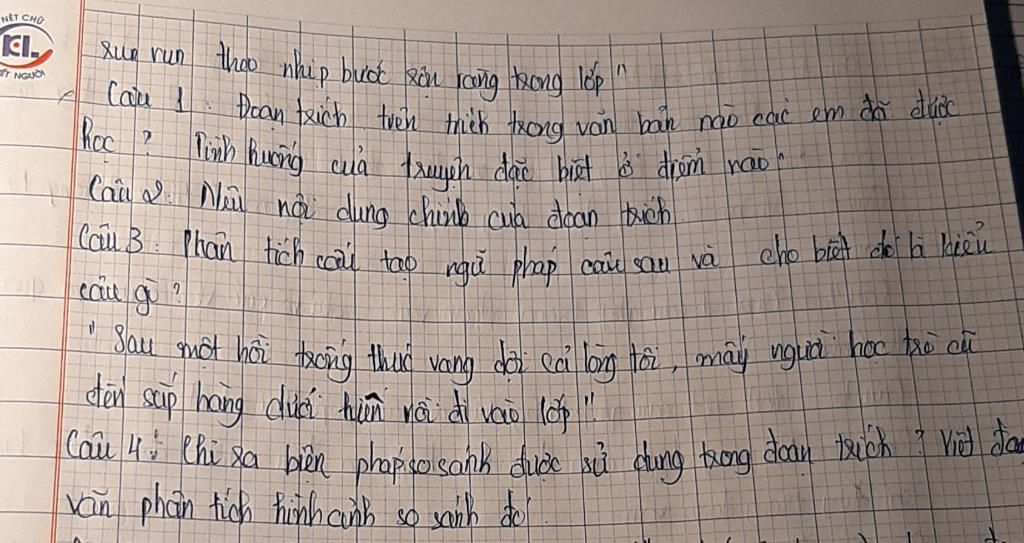 NÉT CHỮ
KL
ẾT NGƯỜI
run run theo nhịp bước rộn ràng trong lớp"
Câu 1: Đoạn trích trên trích trong văn bản nào các em đã được
học ? Tình huống của truyện đặc biệt ở điểm nào
Câu 2: Nêu nội dung chính của đoạn trích
Câu 3: Phân tích cấu tạo ngữ pháp câu sau và cho biết đó là kiểu
câu gì ?
"Sau một hồi trống thúc vang dội cả lòng tôi, mấy người học trò cũ
đến sắp hàng dưới hiên rồi đi vào lớp"
Câu 4: Chỉ ra biện pháp so sánh được sử dụng trong đoạn trích ? Viết đoạn
văn phân tích hình ảnh so sánh đó.